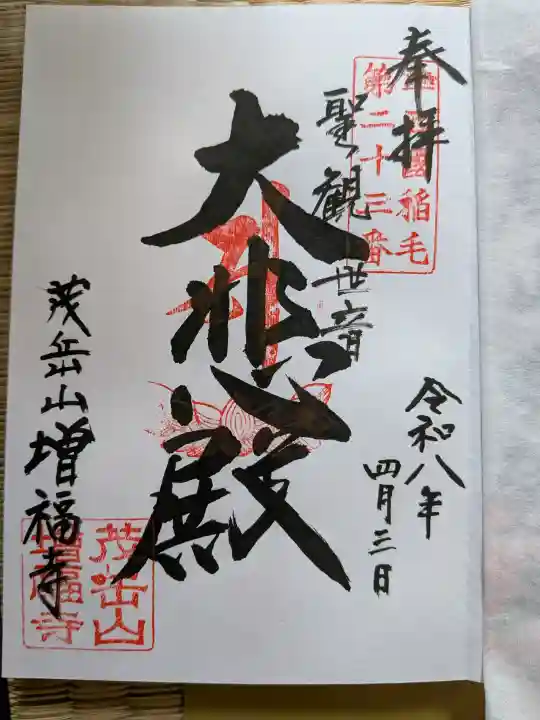 奉拝
國稲毛
第二十三番
令和八年
四月三日
聖観世音
大悲殿
茂岳山増福寺
茂岳山
増福寺